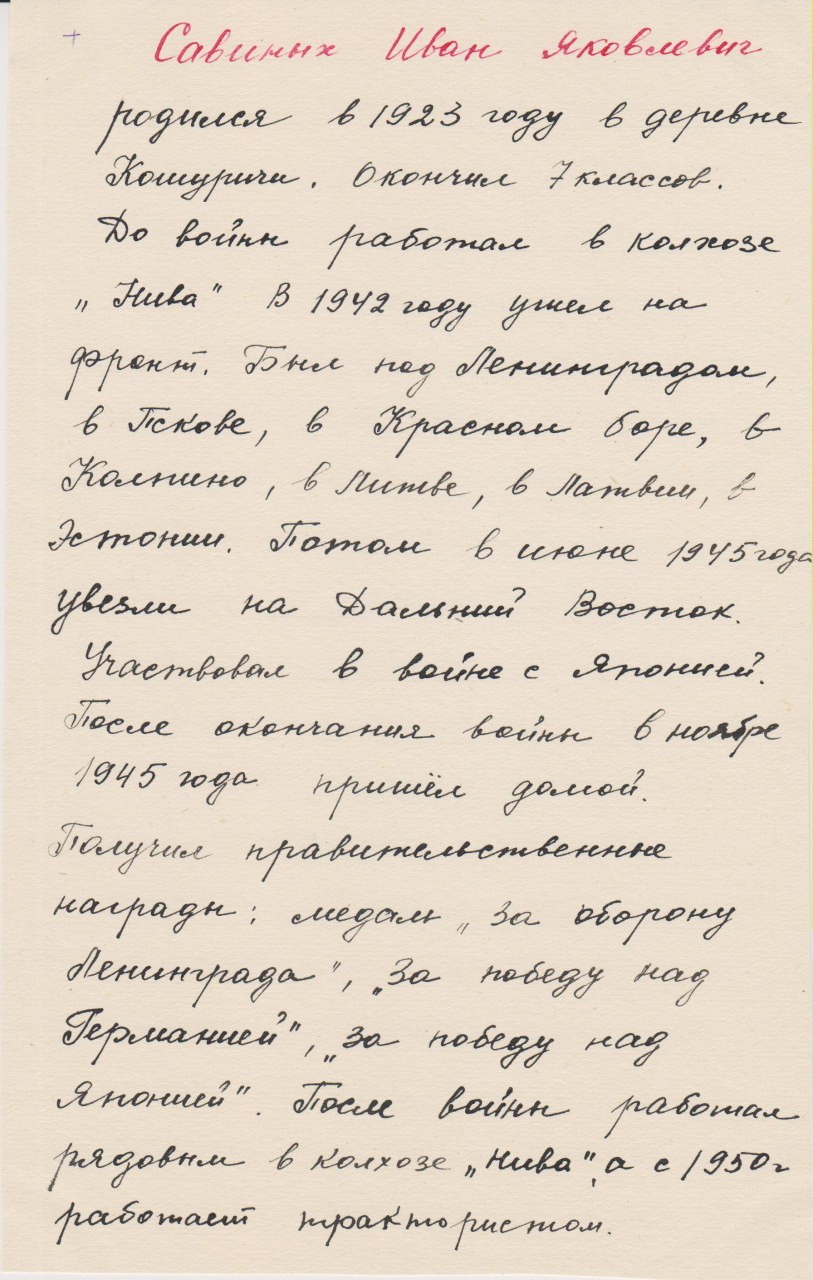 +
Савиных Иван Яковлевич
родился в 1923 году в деревне
Кошуричи. Окончил 7 классов.
До войны работал в колхозе
„Нива" В 1942 году ушел на
фронт. Был под Ленинградом,
в Пскове, в Красном боре, в
Колпино, в Литве, в Латвии, в
Эстонии. Потом в июне 1945 года
увезли на Дальний Восток.
Участвовал в войне с Японией.
После окончания войны в ноябре
1945 года пришёл домой.
Получил правительственные
награды: медаль „За оборону
Ленинграда", „За победу над
Германией", „За победу над
Японией". После войны работал
рядовым в колхозе „Нива", а с 1950г
работает трактористом.